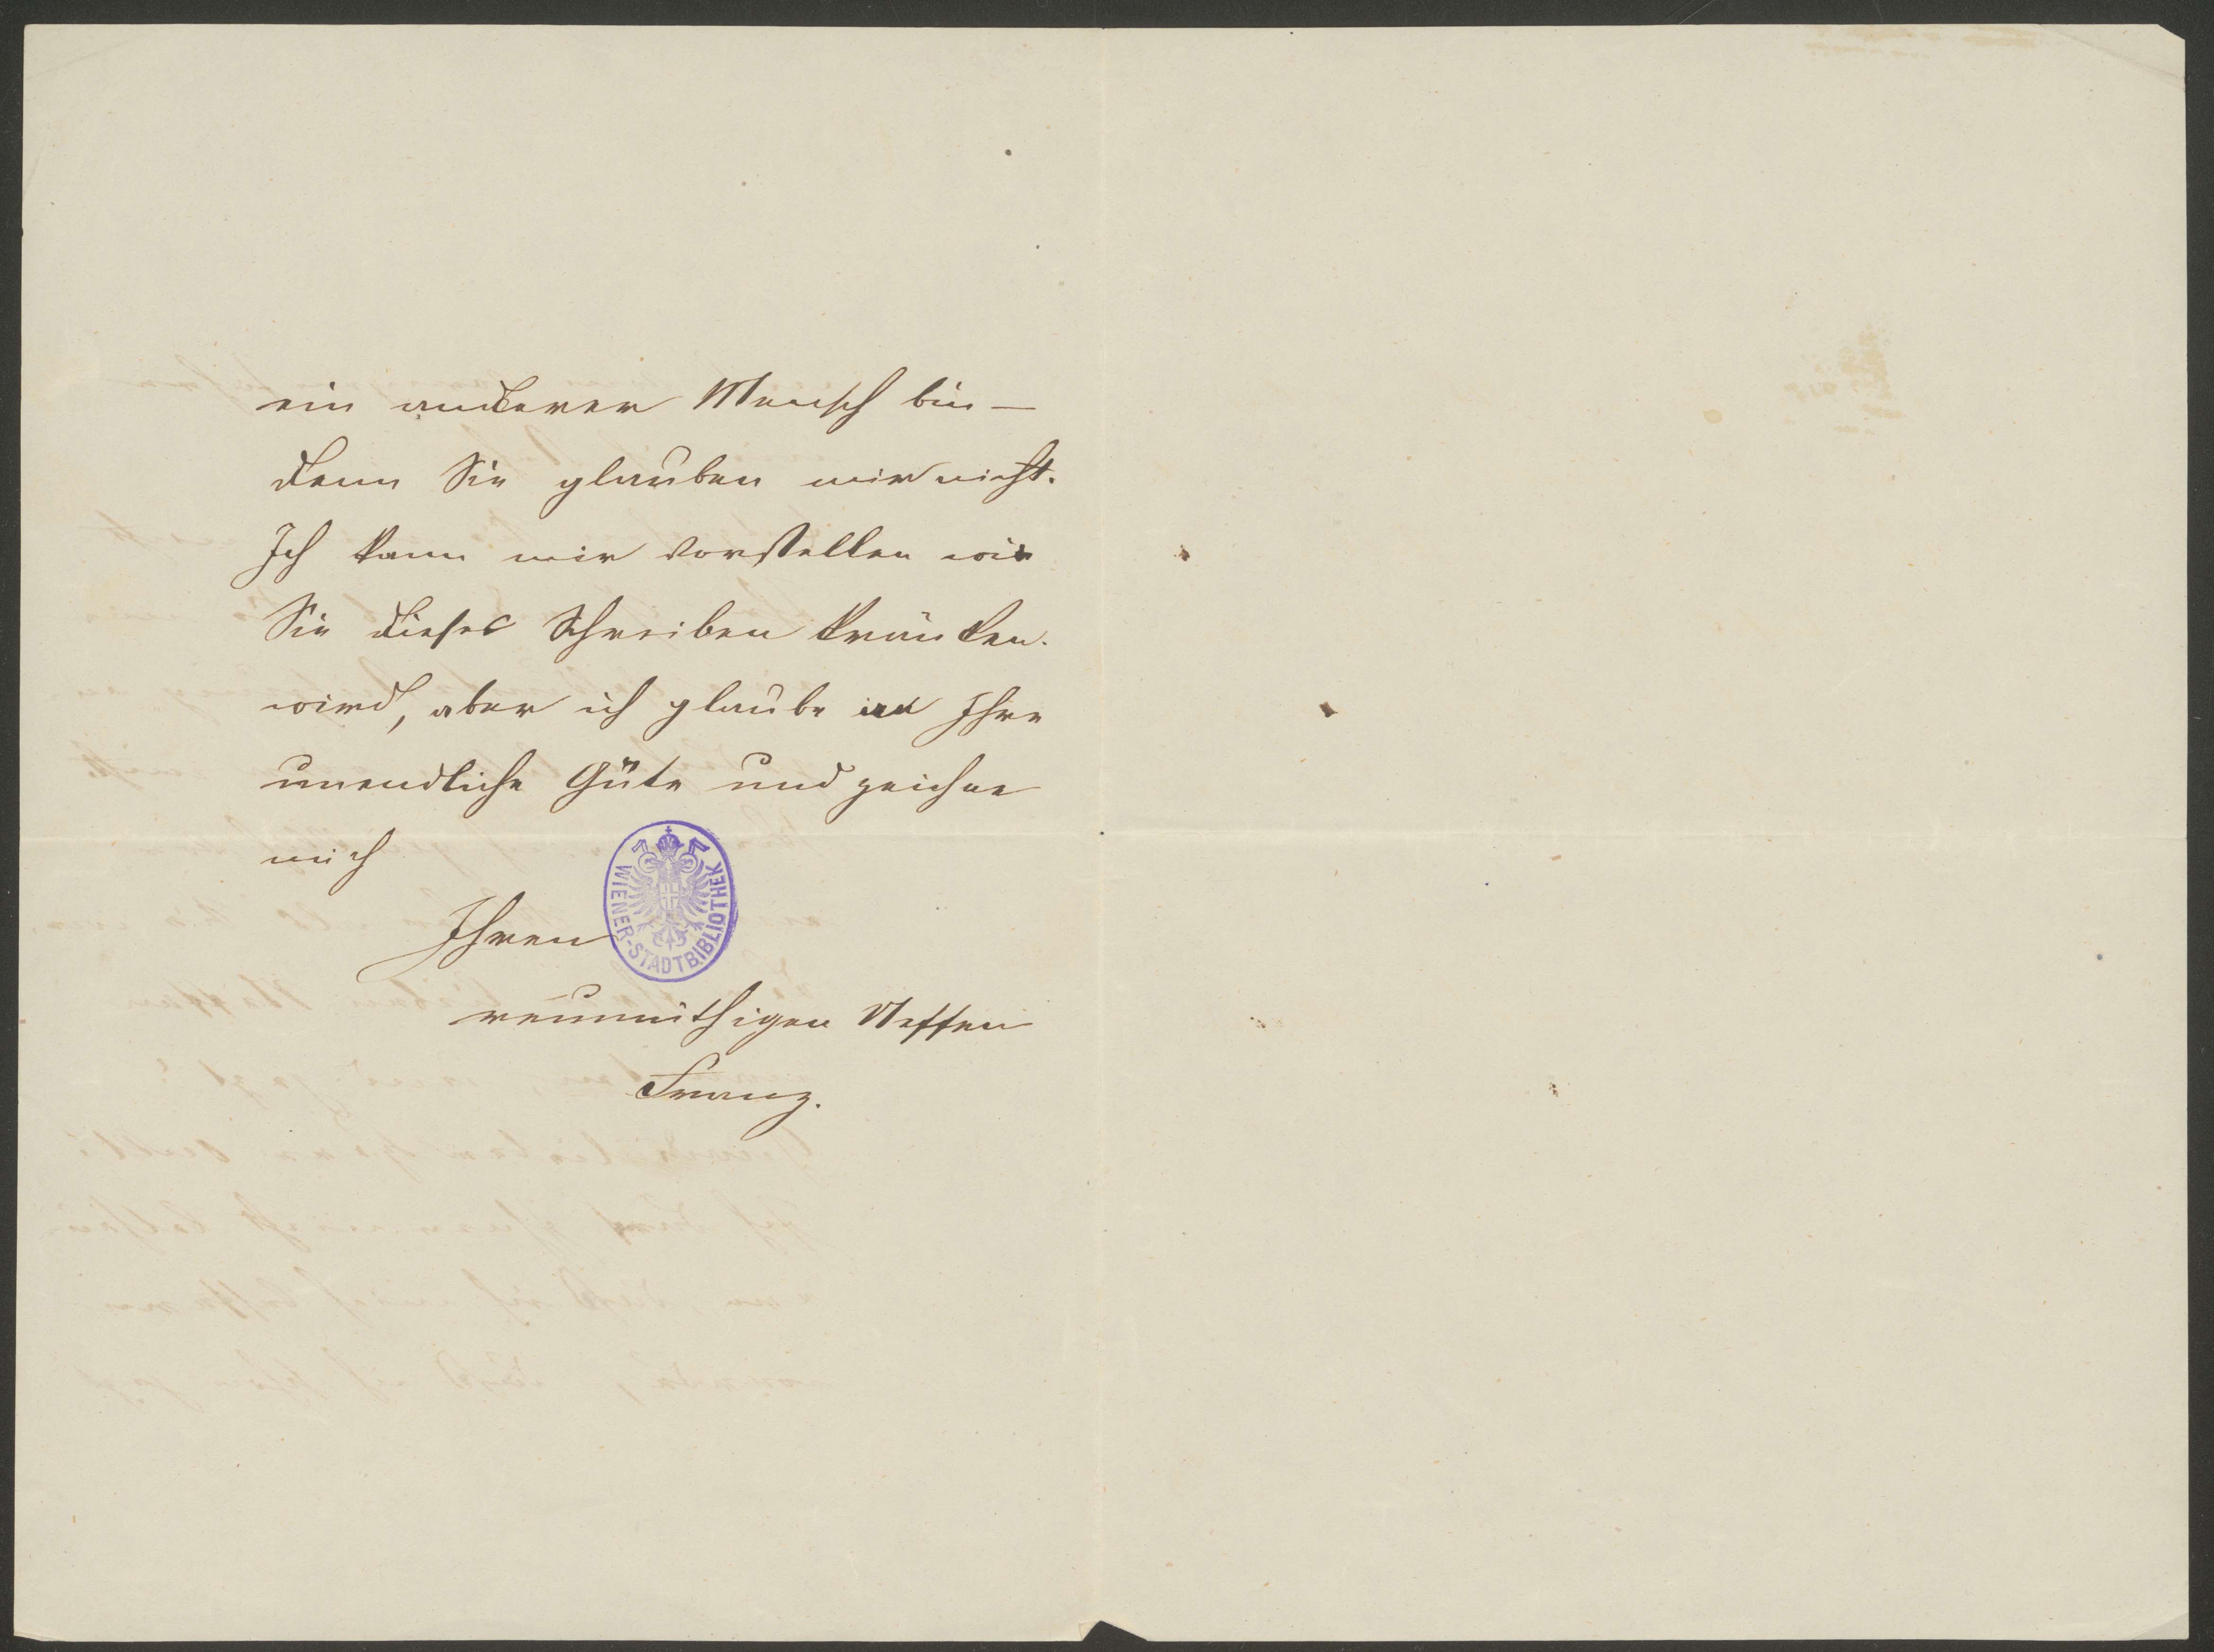 ein anderer Mensch bin —
denn Sie glauben mir nicht.
Ich kann mir vorstellen wie
Sie dieses Schreiben kränken
wird, aber ich glaube an Ihre
unendliche Güte und zeichne
mich
WIENER-STADTBIBLIOTHEK
Ihren
reumüthigen Neffen
Franz.